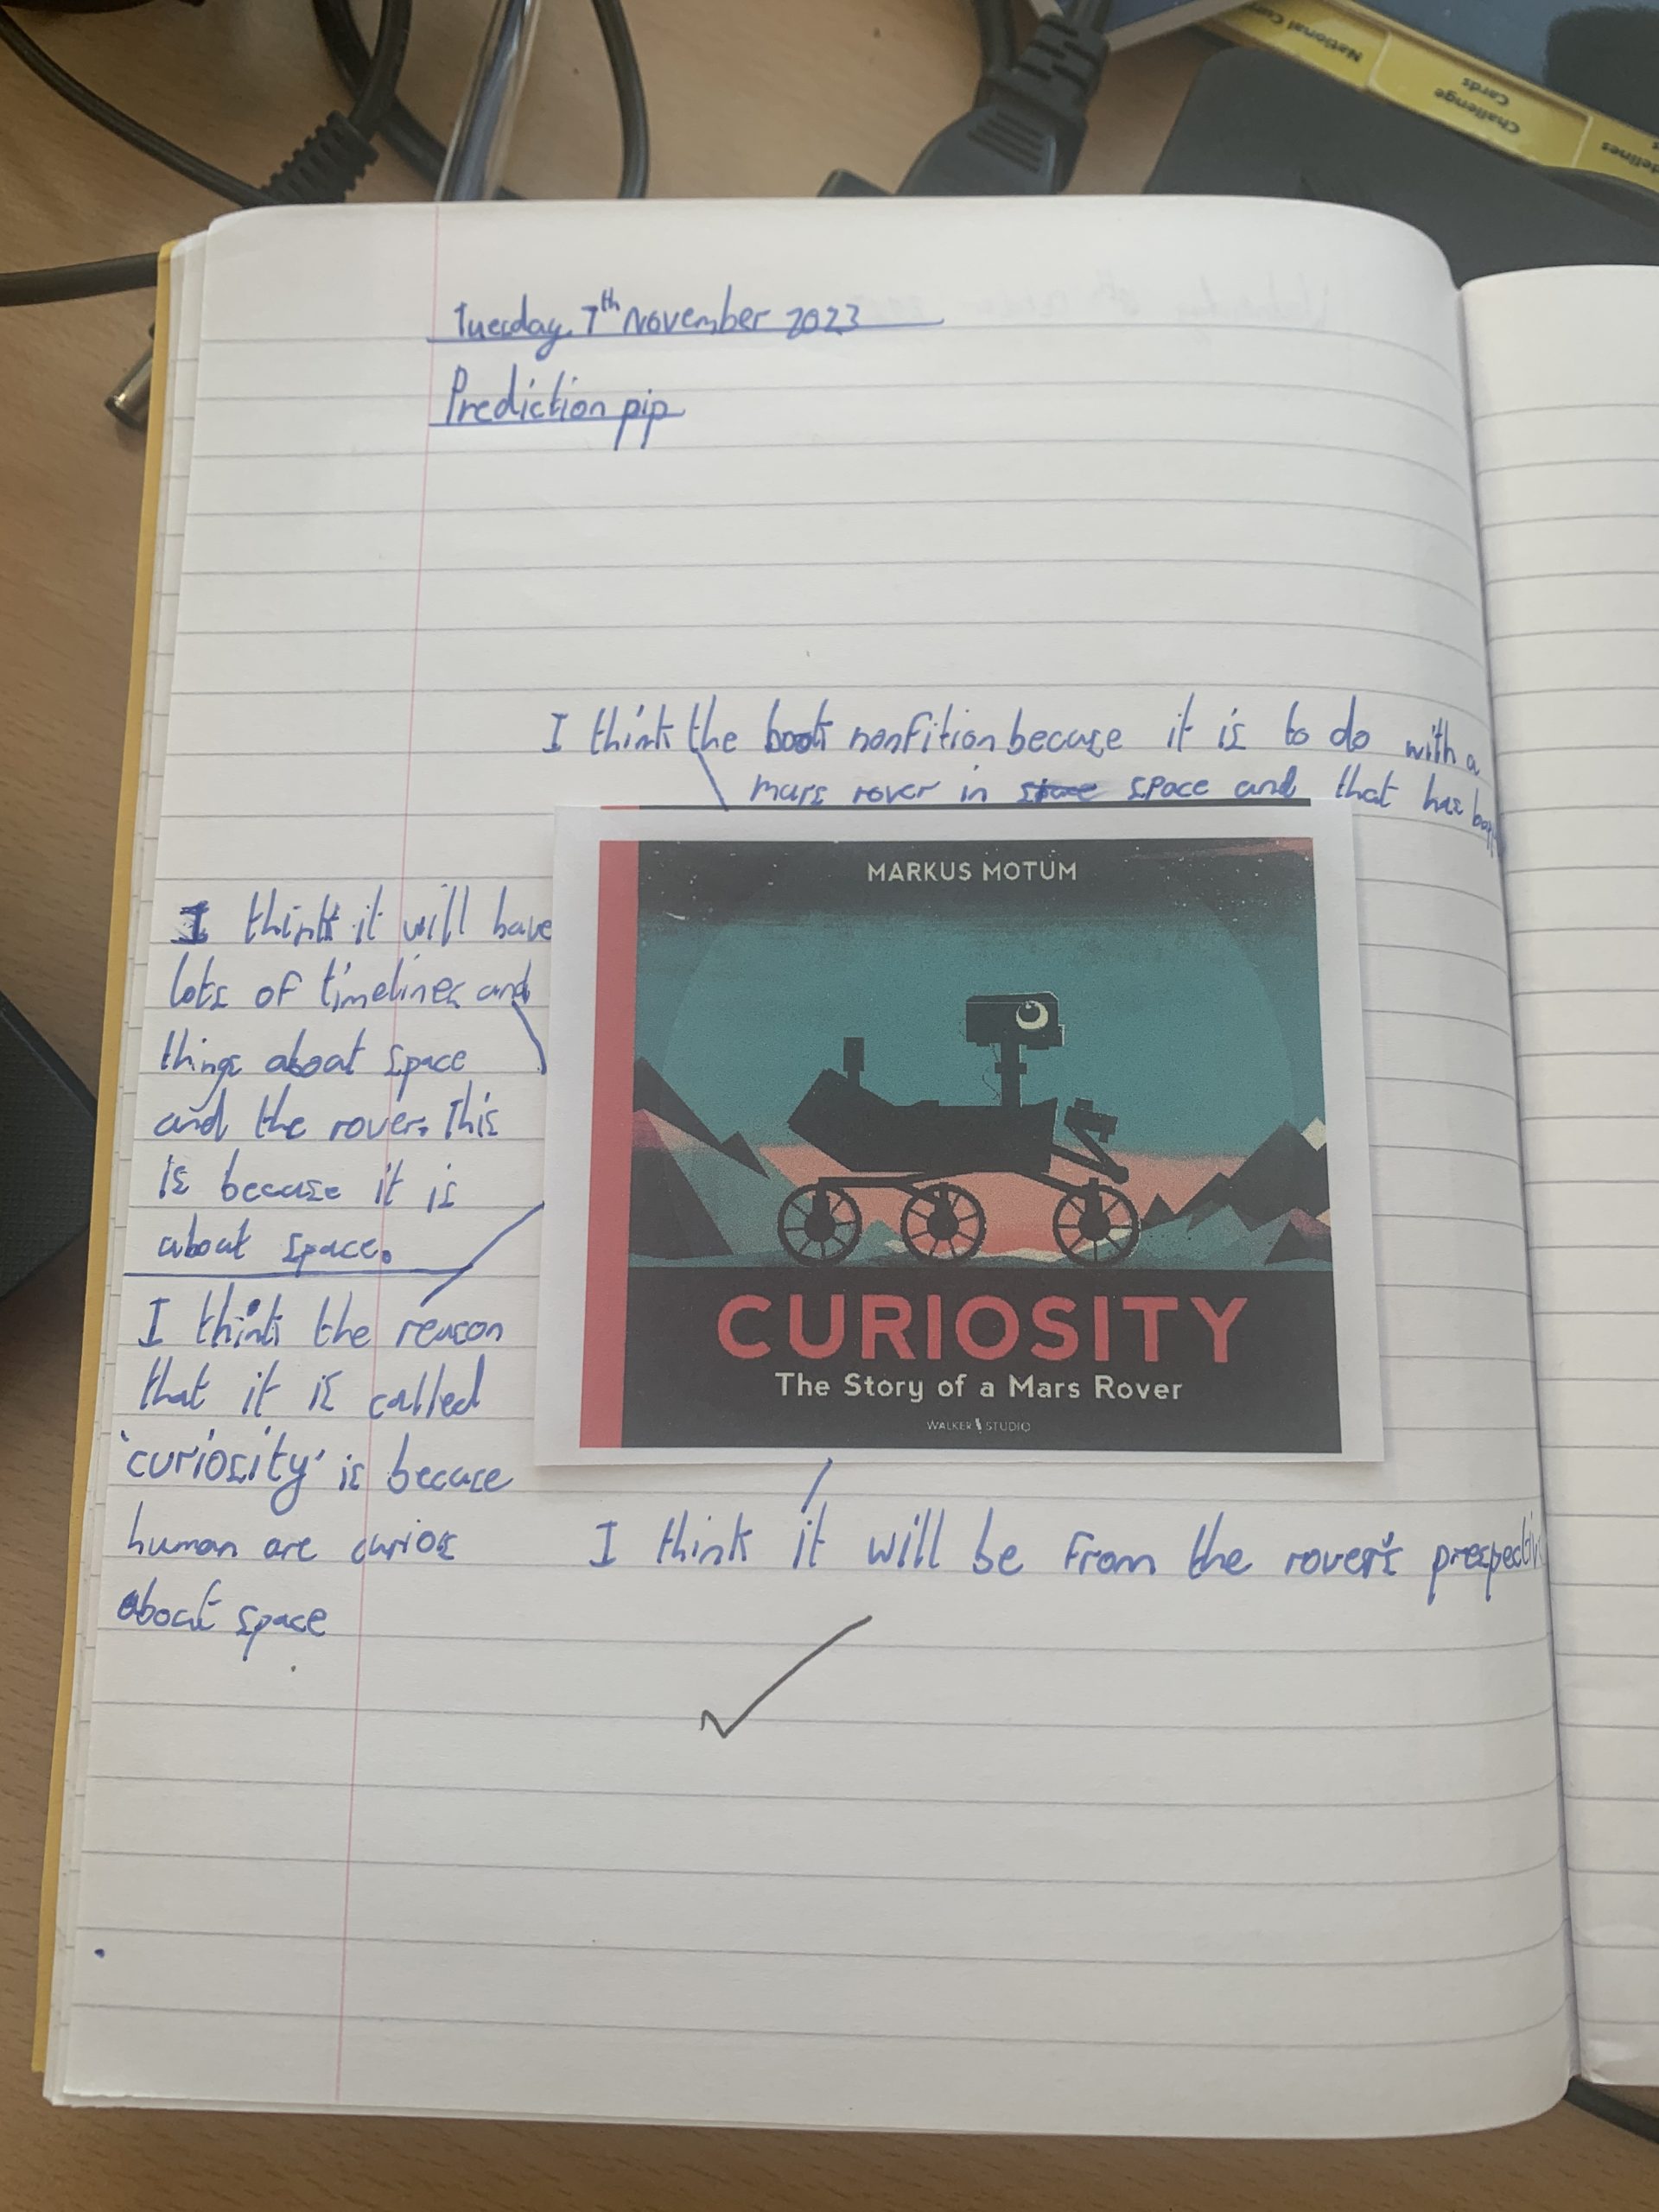 National Curr
Challenge
Cards
delines
Tuesday 7th November 2023
Prediction pip
I think the book nonfition becuase it is to do with a
mars rover in space and that has
I think it will have
lots of timelines and
things about space
and the rover. This
is becuase it is
about space.
I think the reason
that it is called
'curiosity' is becuase
human are curios
about space
MARKUS MOTUM
CURIOSITY
The Story of a Mars Rover
WALKER STUDIO
I think it will be from the rover's prespectiv